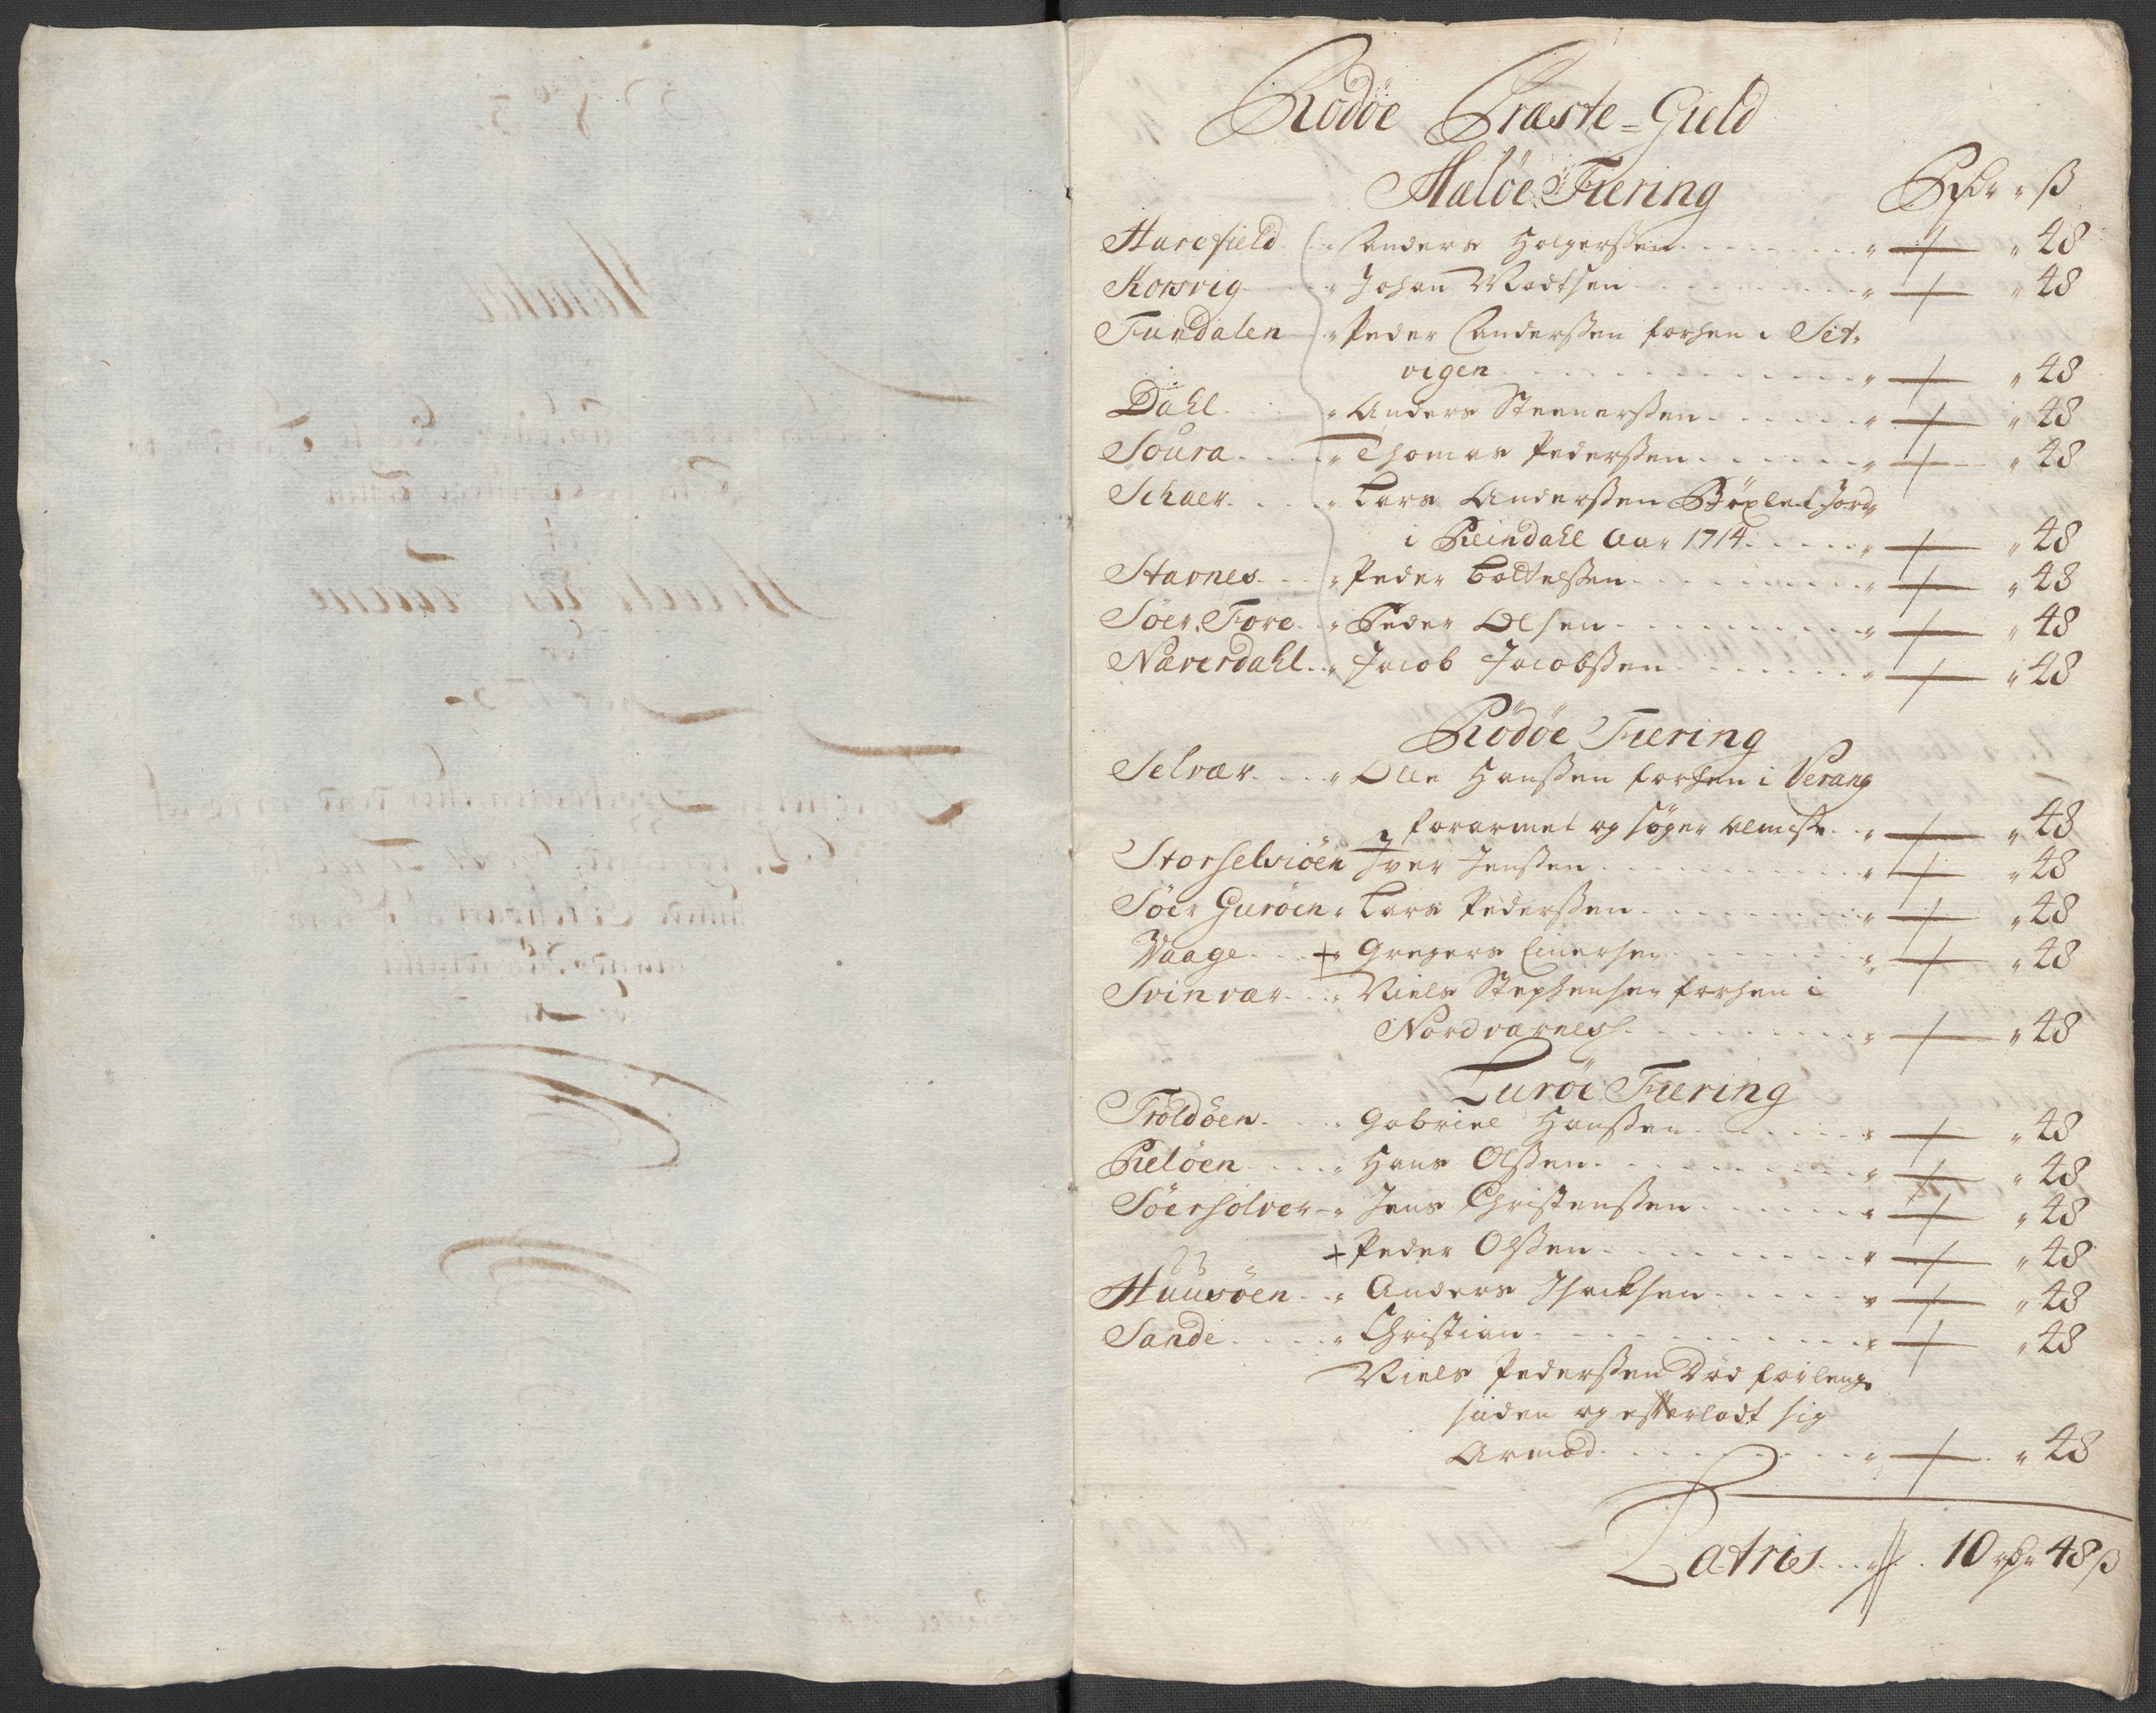 Rödöe Præste=Gield
Maløe Fiering Rdr " ß
Harefield " Anders Holgerssen " " 48
Korsvig " Johan Madtsen " " 48
Fundalen " Peder Anderssen forhen i Set-
vigen " " 48
Dahl " Anders Steenerssen " " 48
Soura " Thomas Pederssen " " 48
Schaer " Lars Anderssen Böxlet Jord
i Reindahl Aar 1714 " " 48
Stavnes " Peder Bottelssen " " 48
Söer Fore " Peder Olsen " " 48
Næverdahl " Jacob Jacobssen " " 48
Rödöe Fiering
Selvær " Olle Hanssen forhen i Verang
forarmet og søger Almisse " " 48
Storselviöen Iver Jenssen " " 48
Söer Guröen " Lars Pederssen " " 48
Vaage + Gregers Einersen " " 48
Svinvær " Niels Stephensen forhen i
Nordværnes " " 48
Luröe Fiering
Troldöen " Gabriel Hanssen " " 48
Relöen " Hans Olssen " " 48
Söersolver " Jens Christenssen " " 48
+ Peder Olssen " " 48
Huusöen " Anders Isacksen " " 48
Sande " Christian " " 48
Niels Pederssen Död forlengs
siiden og efterladt sig
Armod " " 48
Latris 10 rdr 48 ß